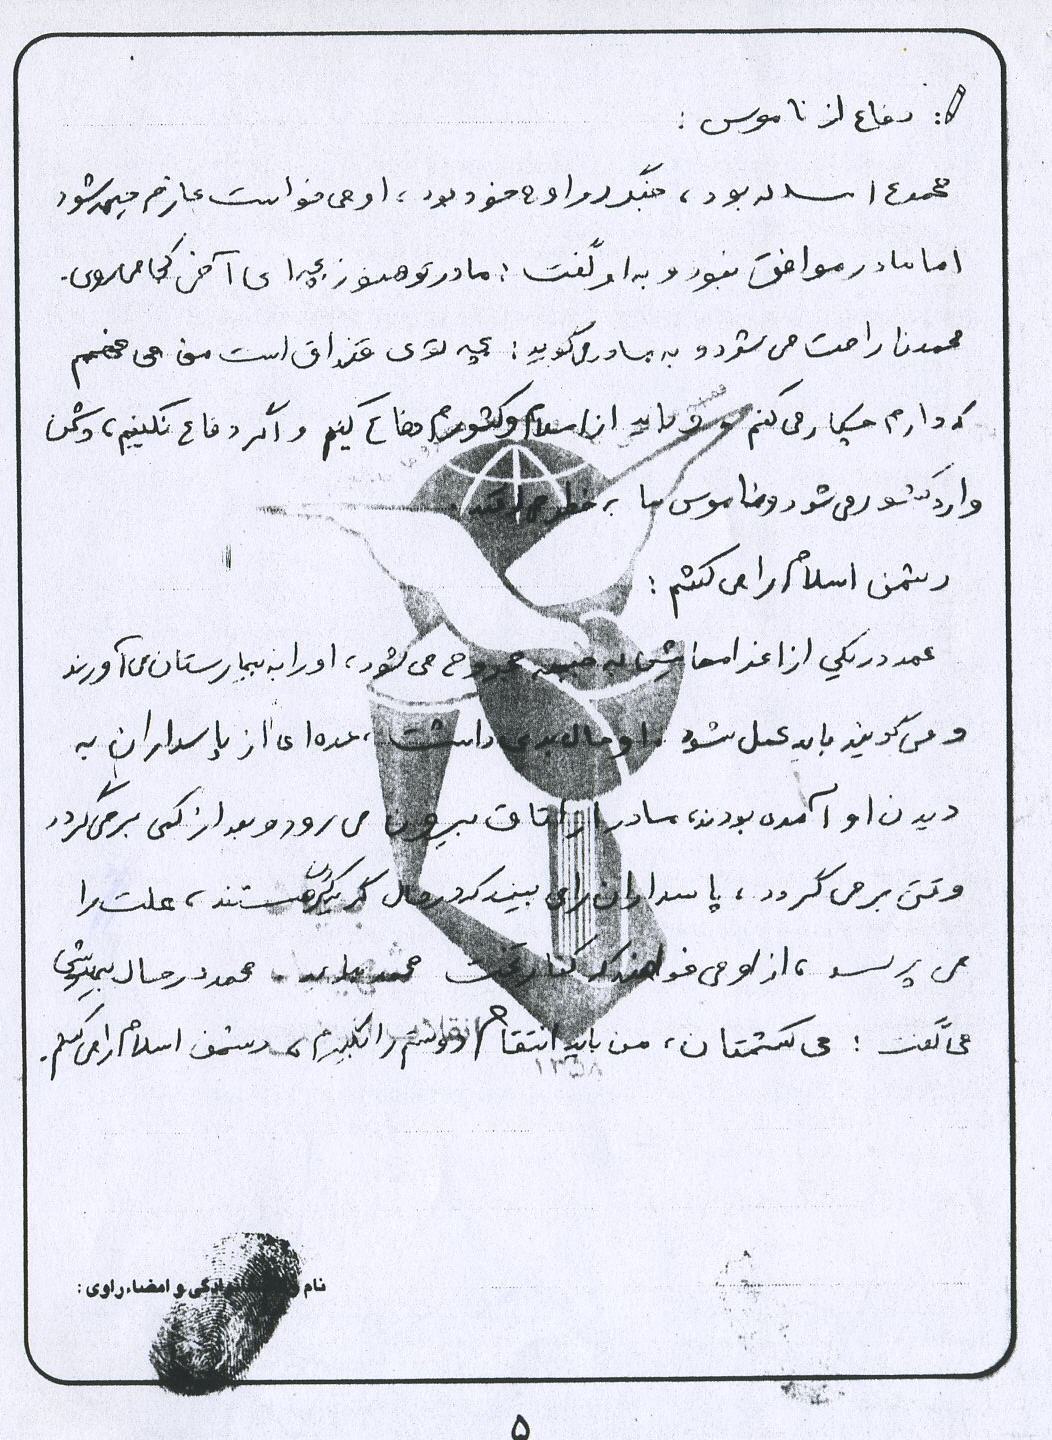 : دفاع از ناموس :
محمد ۱۴ ساله بود ، جنگ در اوج خود بود ، او می خواست عازم جبهه شود
اما مادر موافق نبود و به او گفت : مادر تو هنوز بچه ای آخر کجا می روی .
محمد ناراحت می شود و به مادر می گوید : بچه توی قنداق است من می فهمم
که دارم چکار می کنم و باید از اسلام و کشورم دفاع کنم و اگر دفاع نکنیم ، دشمن
وارد کشور می شود و ناموس ما به خطر می افتد .
دشمن اسلام را می کشم :
محمد در یکی از اعزامهایش به جبهه مجروح می شود ، او را به بیمارستان می آورند
و می گویند باید عمل شود . او حال بدی داشت ، عده ای از پاسداران به
دیدن او آمده بودند ، مادر از اتاق بیرون می رود و بعد از کمی برمی گردد
وقتی برمی گردد ، پاسداران را می بیند که در حال گریه کردن هستند ، علت را
می پرسد ، از او می خواهند که کنار تخت محمد بیاید . محمد در حال بیهوشی
می گفت : می کشمتان ، من باید انتقام دوستم را بگیرم ، دشمن اسلام را می کشم .
نام و نام خانوادگی و امضاء راوی :
۵